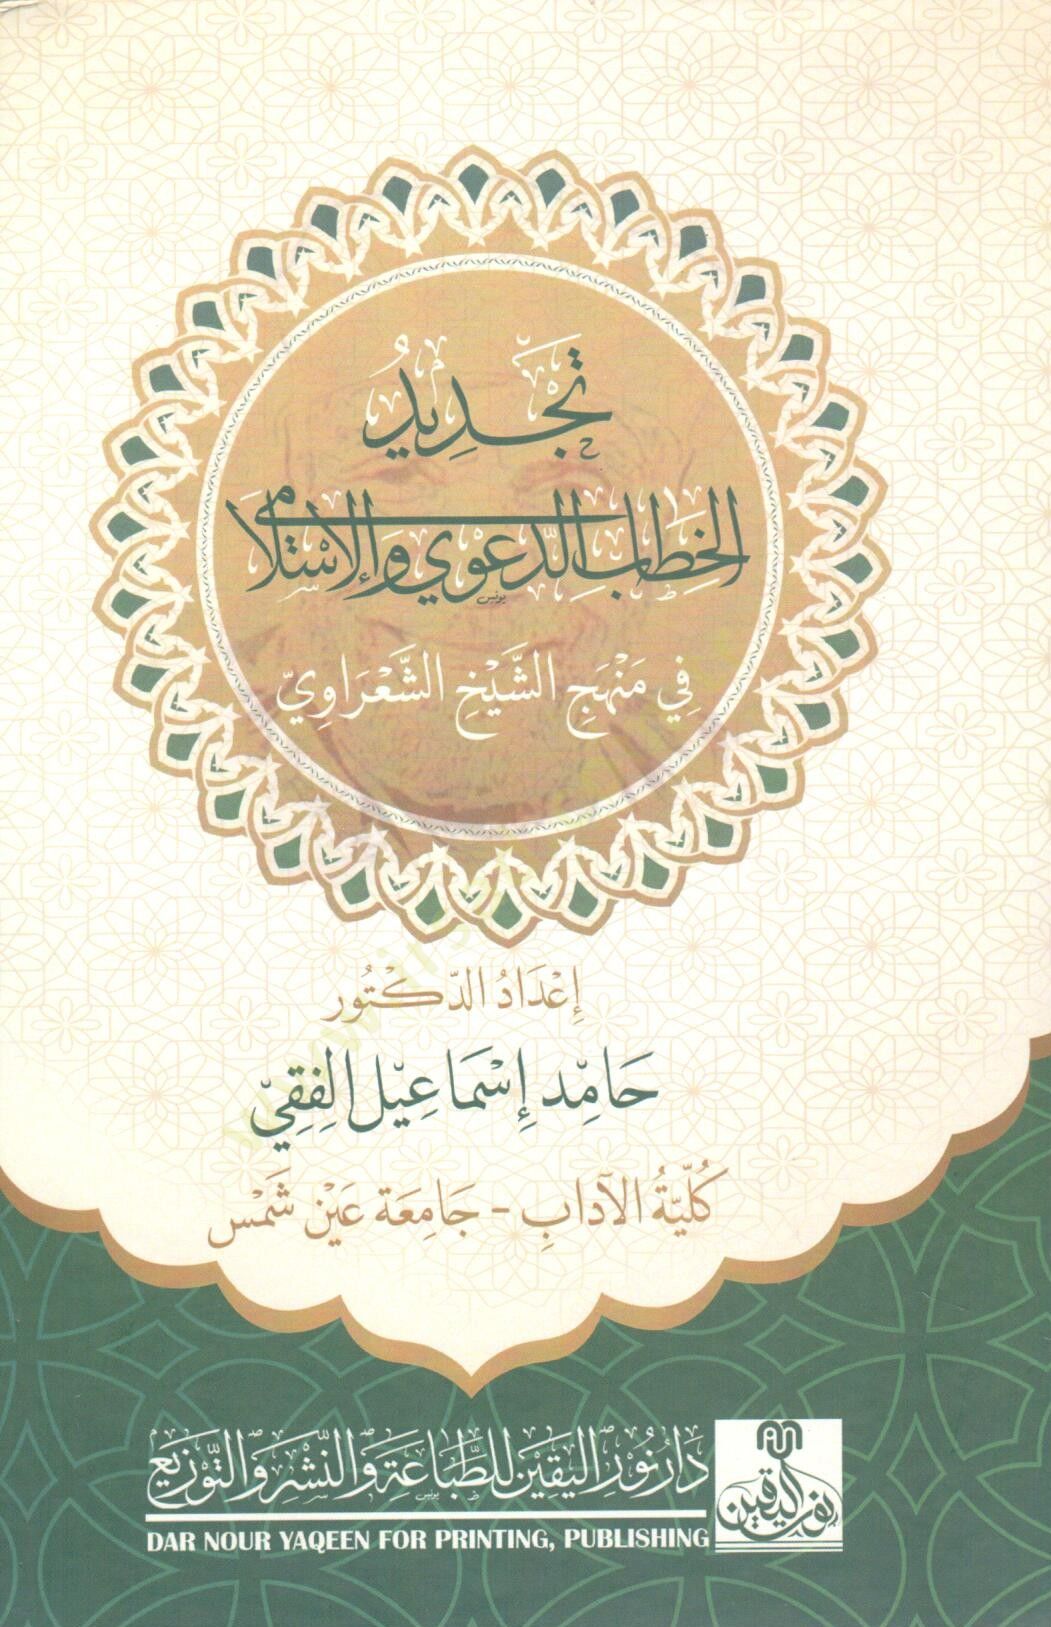 تَجْدِيدُ
الخِطَابِ الدَّعَوِي وَالإِسْلَامِي
فِي مَنْهَجِ الشَّيْخِ الشَّعْرَاوِيّ
إِعْدَادُ الدَّكْتُور
حَامِد إِسْمَاعِيل الفِقِيّ
كُلِّيَّةُ الآدَابِ - جَامِعَة عَيْن شَمْس
دَار نُور اليَقِين للطِّبَاعَةِ وَالنَّشْرِ وَالتَّوْزِيع
نور اليقين
DAR NOUR YAQEEN FOR PRINTING, PUBLISHING